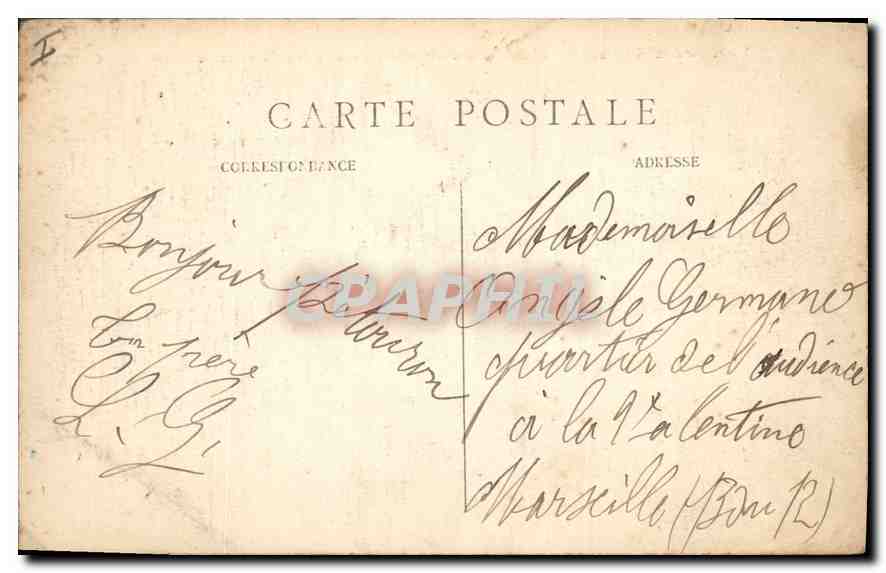 I
CARTE POSTALE
CORRESPONDANCE
ADRESSE
Bonjour
ton père
L. G.
Mademoiselle
Angèle Germano
quartier de l'audience
à la Valentine
Marseille (B du R)
CPAPHIL